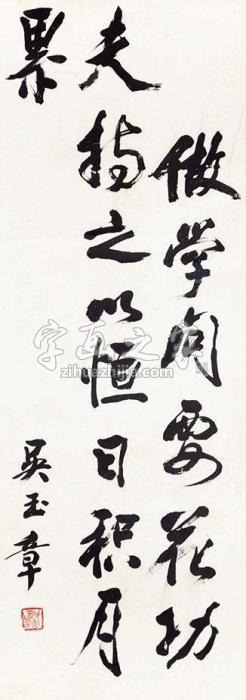 做学问要花功
夫持之以恒日积月
累
吴玉章
zihuazhijie.com